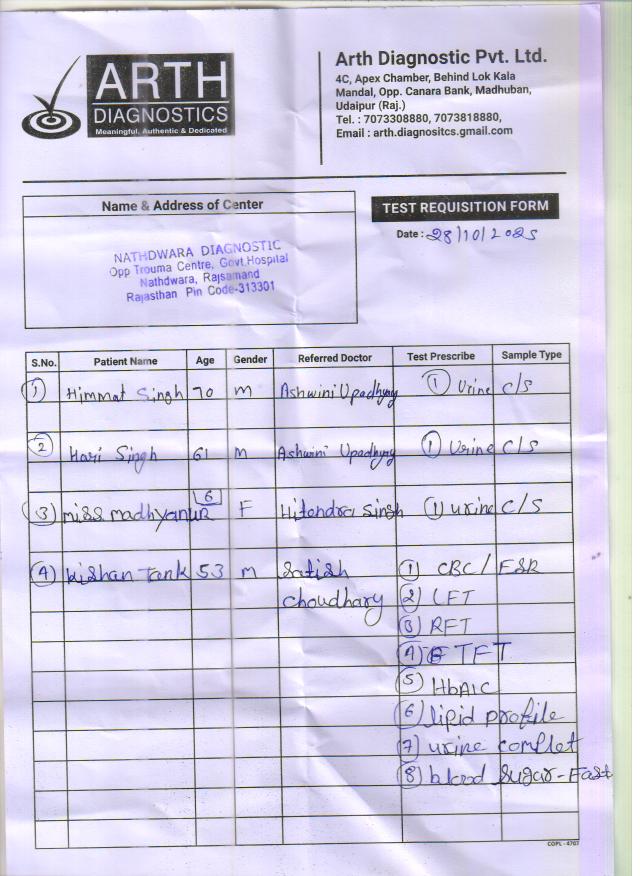 ARTH
DIAGNOSTICS
Meaningful, Authentic & Dedicated
Arth Diagnostic Pvt. Ltd.
4C, Apex Chamber, Behind Lok Kala
Mandal, Opp. Canara Bank, Madhuban,
Udaipur (Raj.)
Tel. : 7073308880, 7073818880,
Email : arth.diagnositcs.gmail.com
Name & Address of Center
NATHDWARA DIAGNOSTIC
Opp Trouma Centre, Govt.Hospital
Nathdwara, Rajsamand
Rajasthan Pin Code-313301
TEST REQUISITION FORM
Date : 28/10/2025
S.No. Patient Name Age Gender Referred Doctor Test Prescribe Sample Type
1) Himmat Singh 70 M Ashwini Upadhyay 1 Urine C/S
2 Hari Singh 61 M Ashwini Upadhyay 1 Urine C/S
3) miss madhyanur 6 F Hitendra Singh 1) urine C/S
4) kishan tank 53 M Satish 1) CBC / ESR
choudhary 2) LFT
3) RFT
4) TFT
5) HbA1C
6) lipid profile
7) urine complet
8) blood sugar-Fast
COPL - 4767